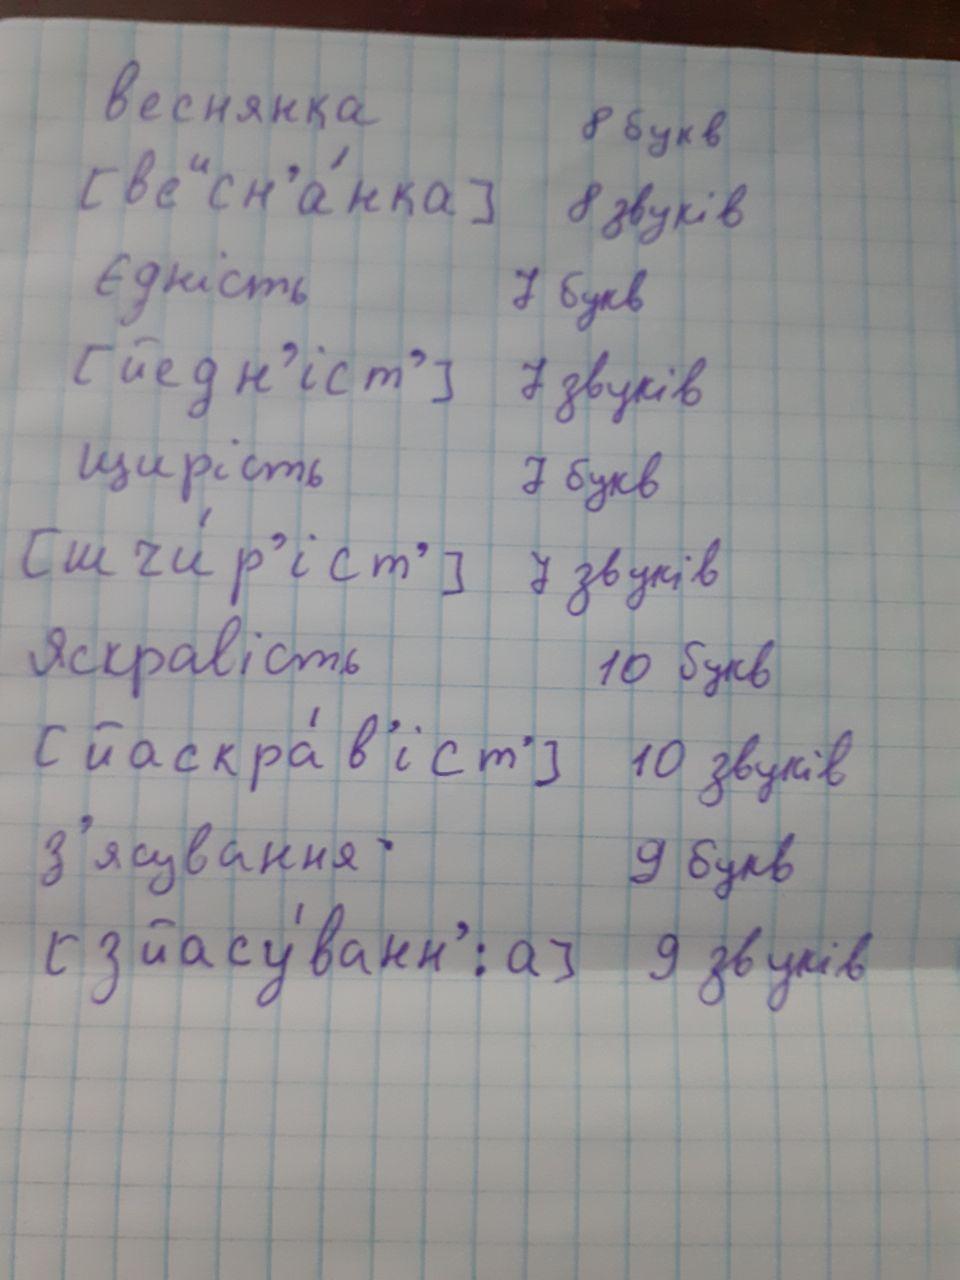 веснянка 8 букв
[веᶦсн'а́нка] 8 звуків
Єдність 7 букв
[йедн'іст'] 7 звуків
щирість 7 букв
[шчи́р'іст'] 7 звуків
Яскравість 10 букв
[йаскра́в'іст'] 10 звуків
з'ясування 9 букв
[зйасу́ванн':а] 9 звуків